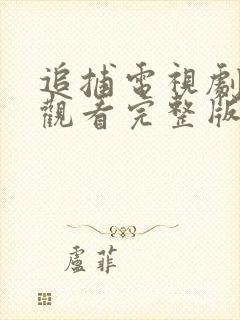 追捕電視劇
觀看完整版
盧菲